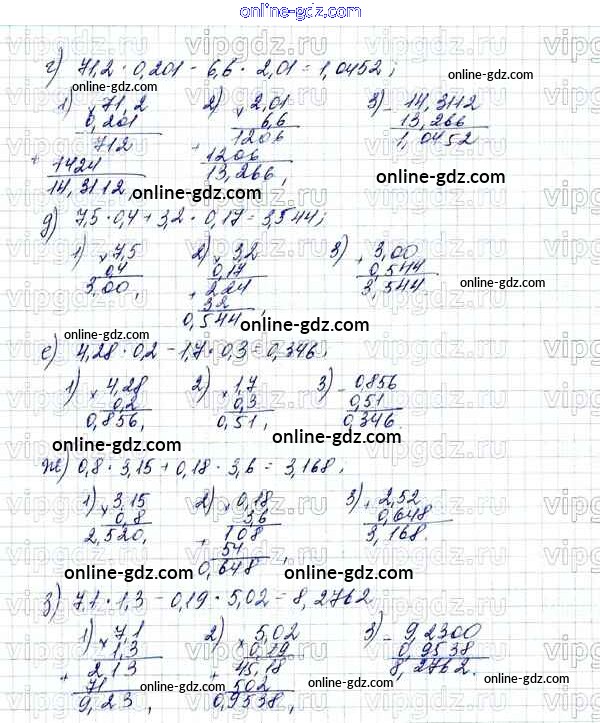 online-gdz.com
г) 71,2 · 0,201 - 6,6 · 2,01 = 1,0452;
1) × 71,2   2) × 2,01   3) - 14,3112
0,201   6,6   13,266
712   1206   1,0452
+ 1424   + 1206
14,3112   13,266,
online-gdz.com online-gdz.com online-gdz.com
д) 7,5 · 0,4 + 3,2 · 0,17 = 3,544;
1) × 7,5   2) × 3,2   3) + 3,00
0,4   0,17   0,544
3,00,   + 224   3,544
32
0,544,
online-gdz.com online-gdz.com online-gdz.com
е) 4,28 · 0,2 - 1,7 · 0,3 = 0,346;
1) × 4,28   2) × 1,7   3) - 0,856
0,2   0,3   0,51
0,856,   0,51,   0,346
online-gdz.com online-gdz.com online-gdz.com
ж) 0,8 · 3,15 + 0,18 · 3,6 = 3,168,
1) × 3,15   2) × 0,18   3) + 2,52
0,8   3,6   0,648
2,520,   + 108   3,168.
54
0,648,
online-gdz.com online-gdz.com online-gdz.com
з) 7,1 · 1,3 - 0,19 · 5,02 = 8,2762
1) × 7,1   2) × 5,02   3) - 9,2300
1,3   0,19   0,9538
+ 213   + 45,18   8,2762.
71   502
9,23,   0,9538,
online-gdz.com online-gdz.com online-gdz.com